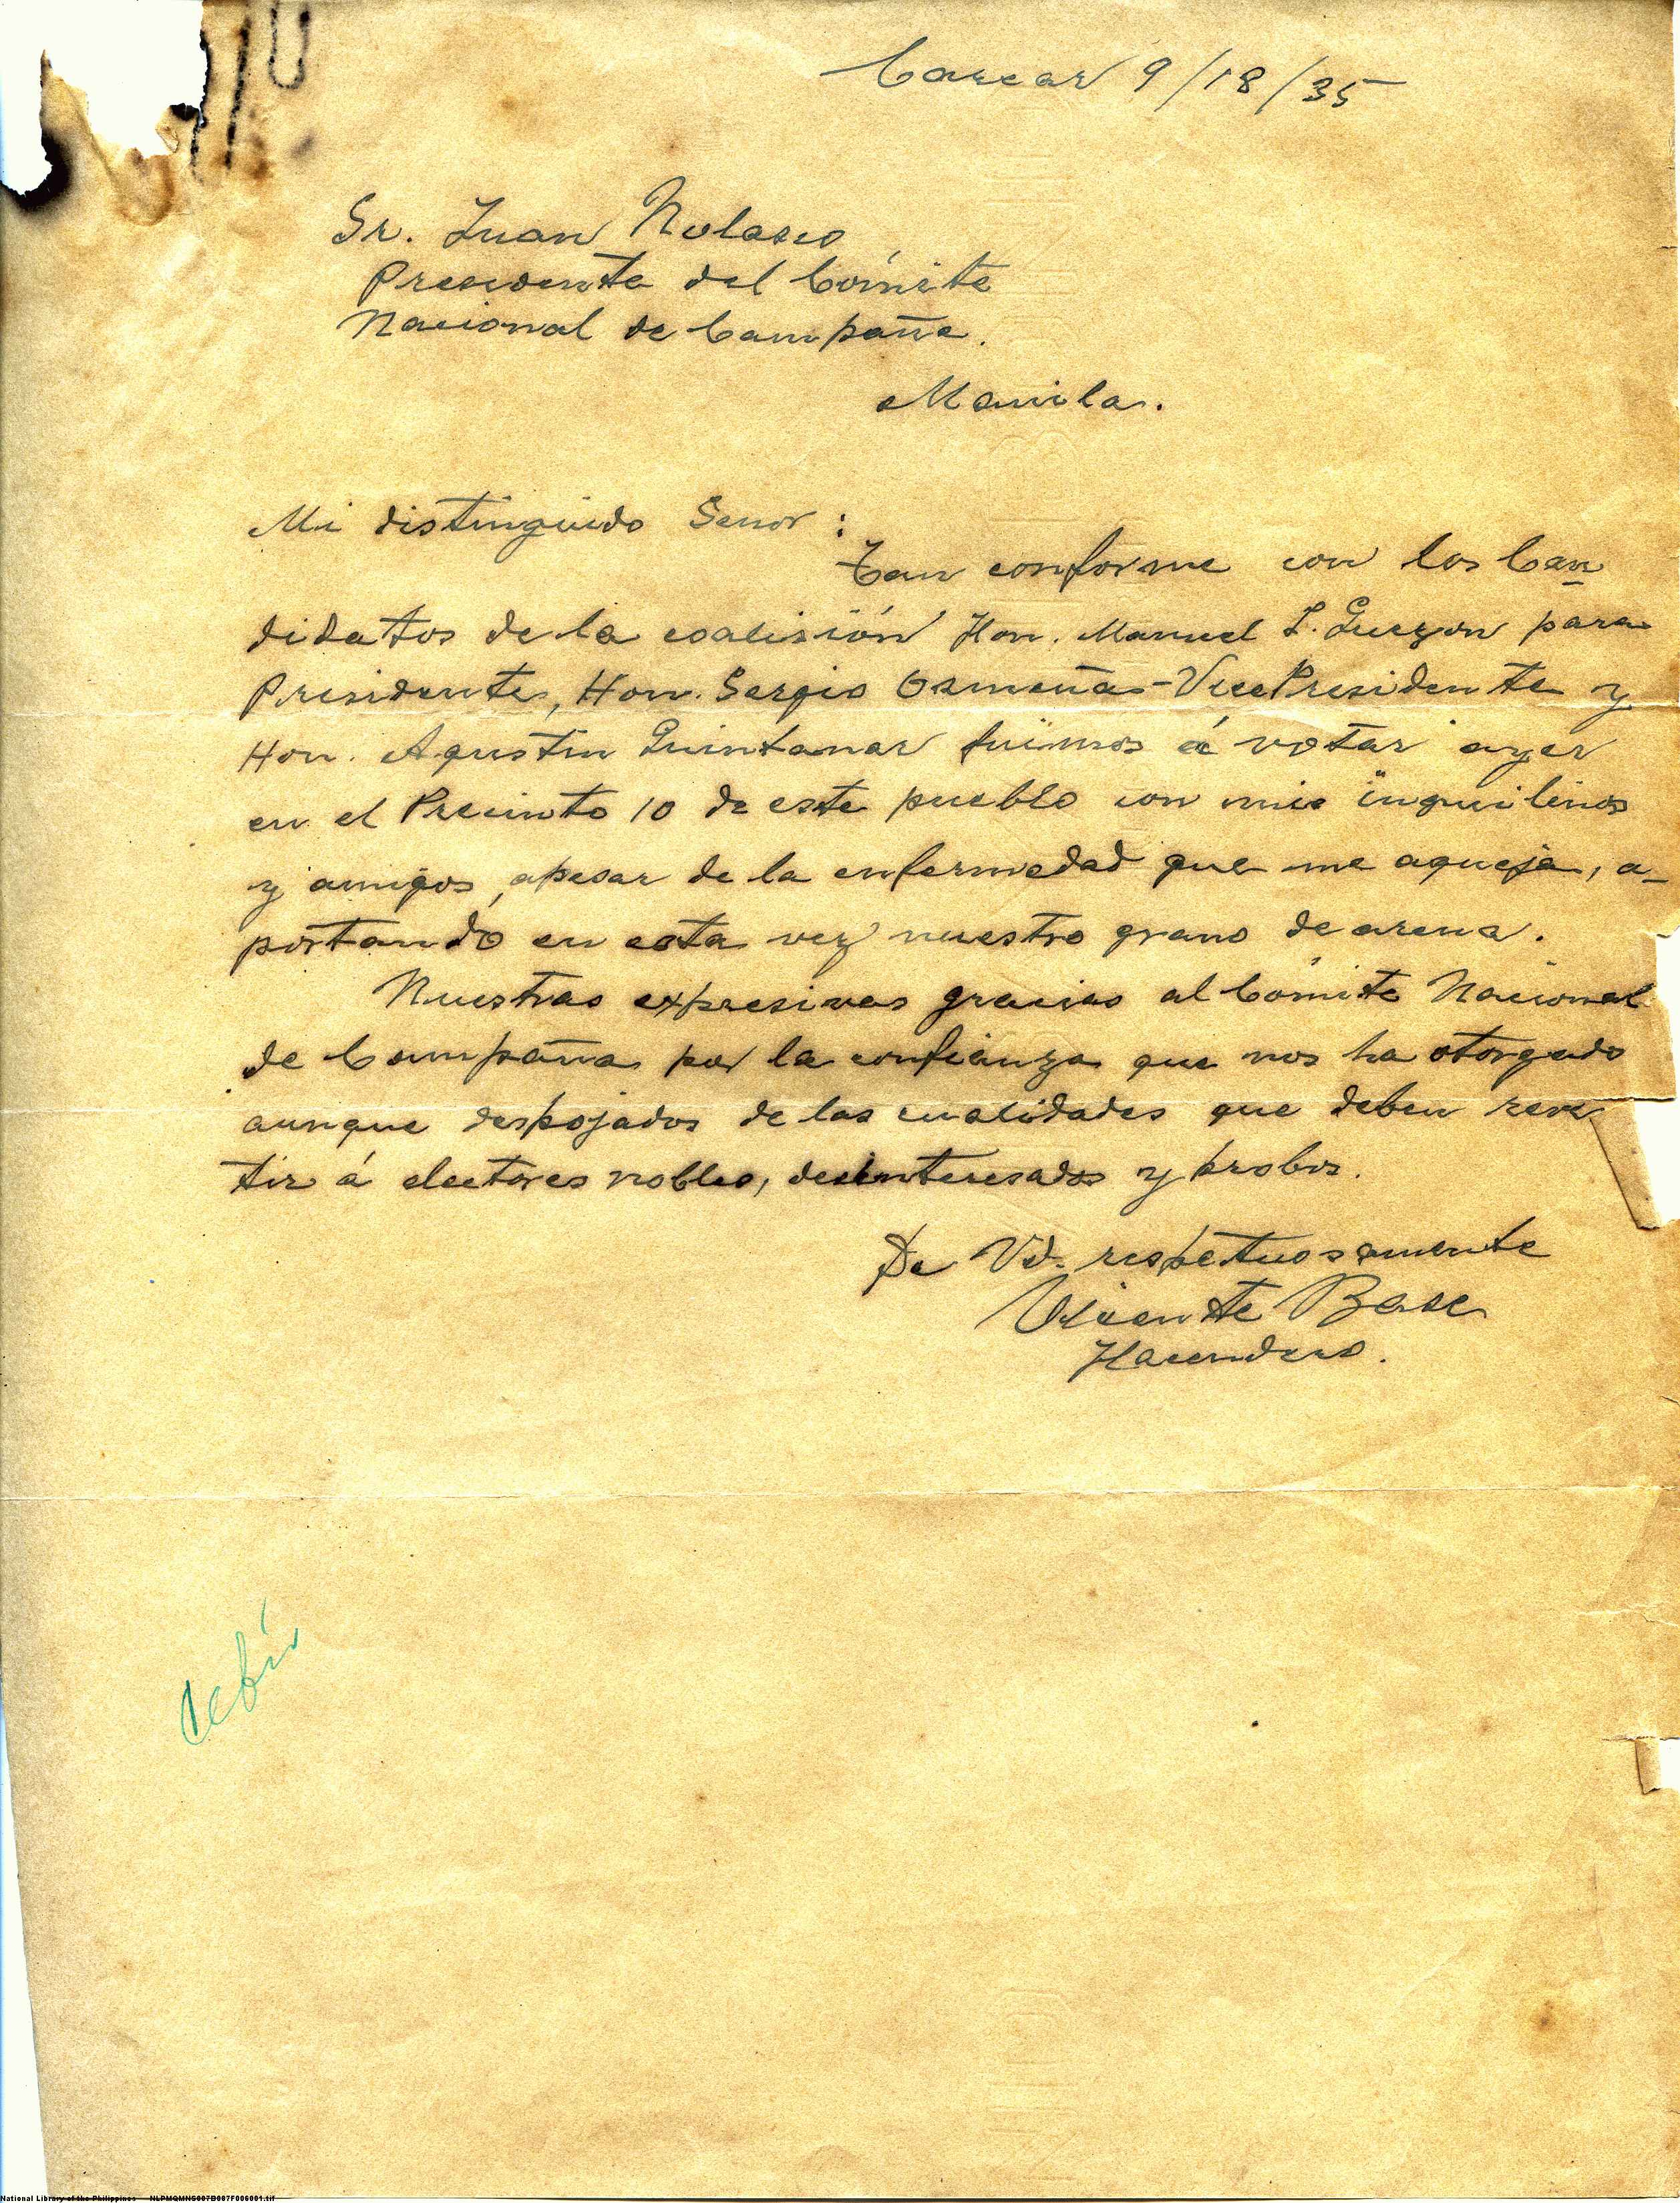 Carcar 9/18/35
Sr. Juan Nolasco
Presidente del Cómite
Nacional de Campaña.
Manila.
Mi distinguido Senor :
Tan conforme con los Can
didatos de la coalisión Hon. Manuel L. Quezon para
Presidente, Hon. Sergio Osmeña - Vice Presidente y
Hon. Agustin Quintanar fuimos á votar ayer
en el Precinto 10 de este pueblo con mis inquilinos
y amigos, apesar de la enfermedad que me aqueja, a-
portando en esta vez nuestro grano de arena.
Nuestras expresivas gracias al Cómite Nacional
de Campaña por la confianza que nos ha otorgado
aunque despojados de las cualidades que deben reves
tir á electores nobles, desinteresados y probos.
De Vd. respetuosamente
Vicente Base
Hacendero.
Cebú
National Library of the Philippines NLPMQMNS007B007F006001.tif